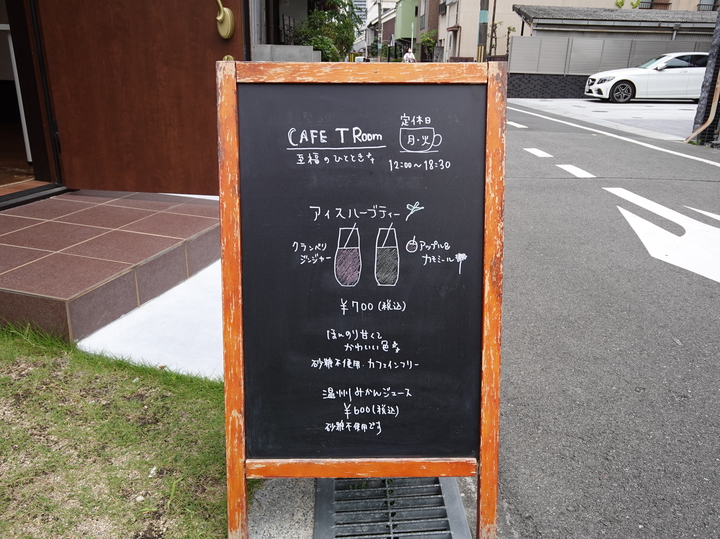 CAFE T Room
至福のひとときを
定休日
月・火
12:00〜18:30
アイスハーブティー
クランベリ
ジンジャー
アップル&
カモミール
¥700(税込)
ほんのり甘くて
かわいい色を
砂糖不使用・カフェインフリー
温州みかんジュース
¥600(税込)
砂糖不使用です